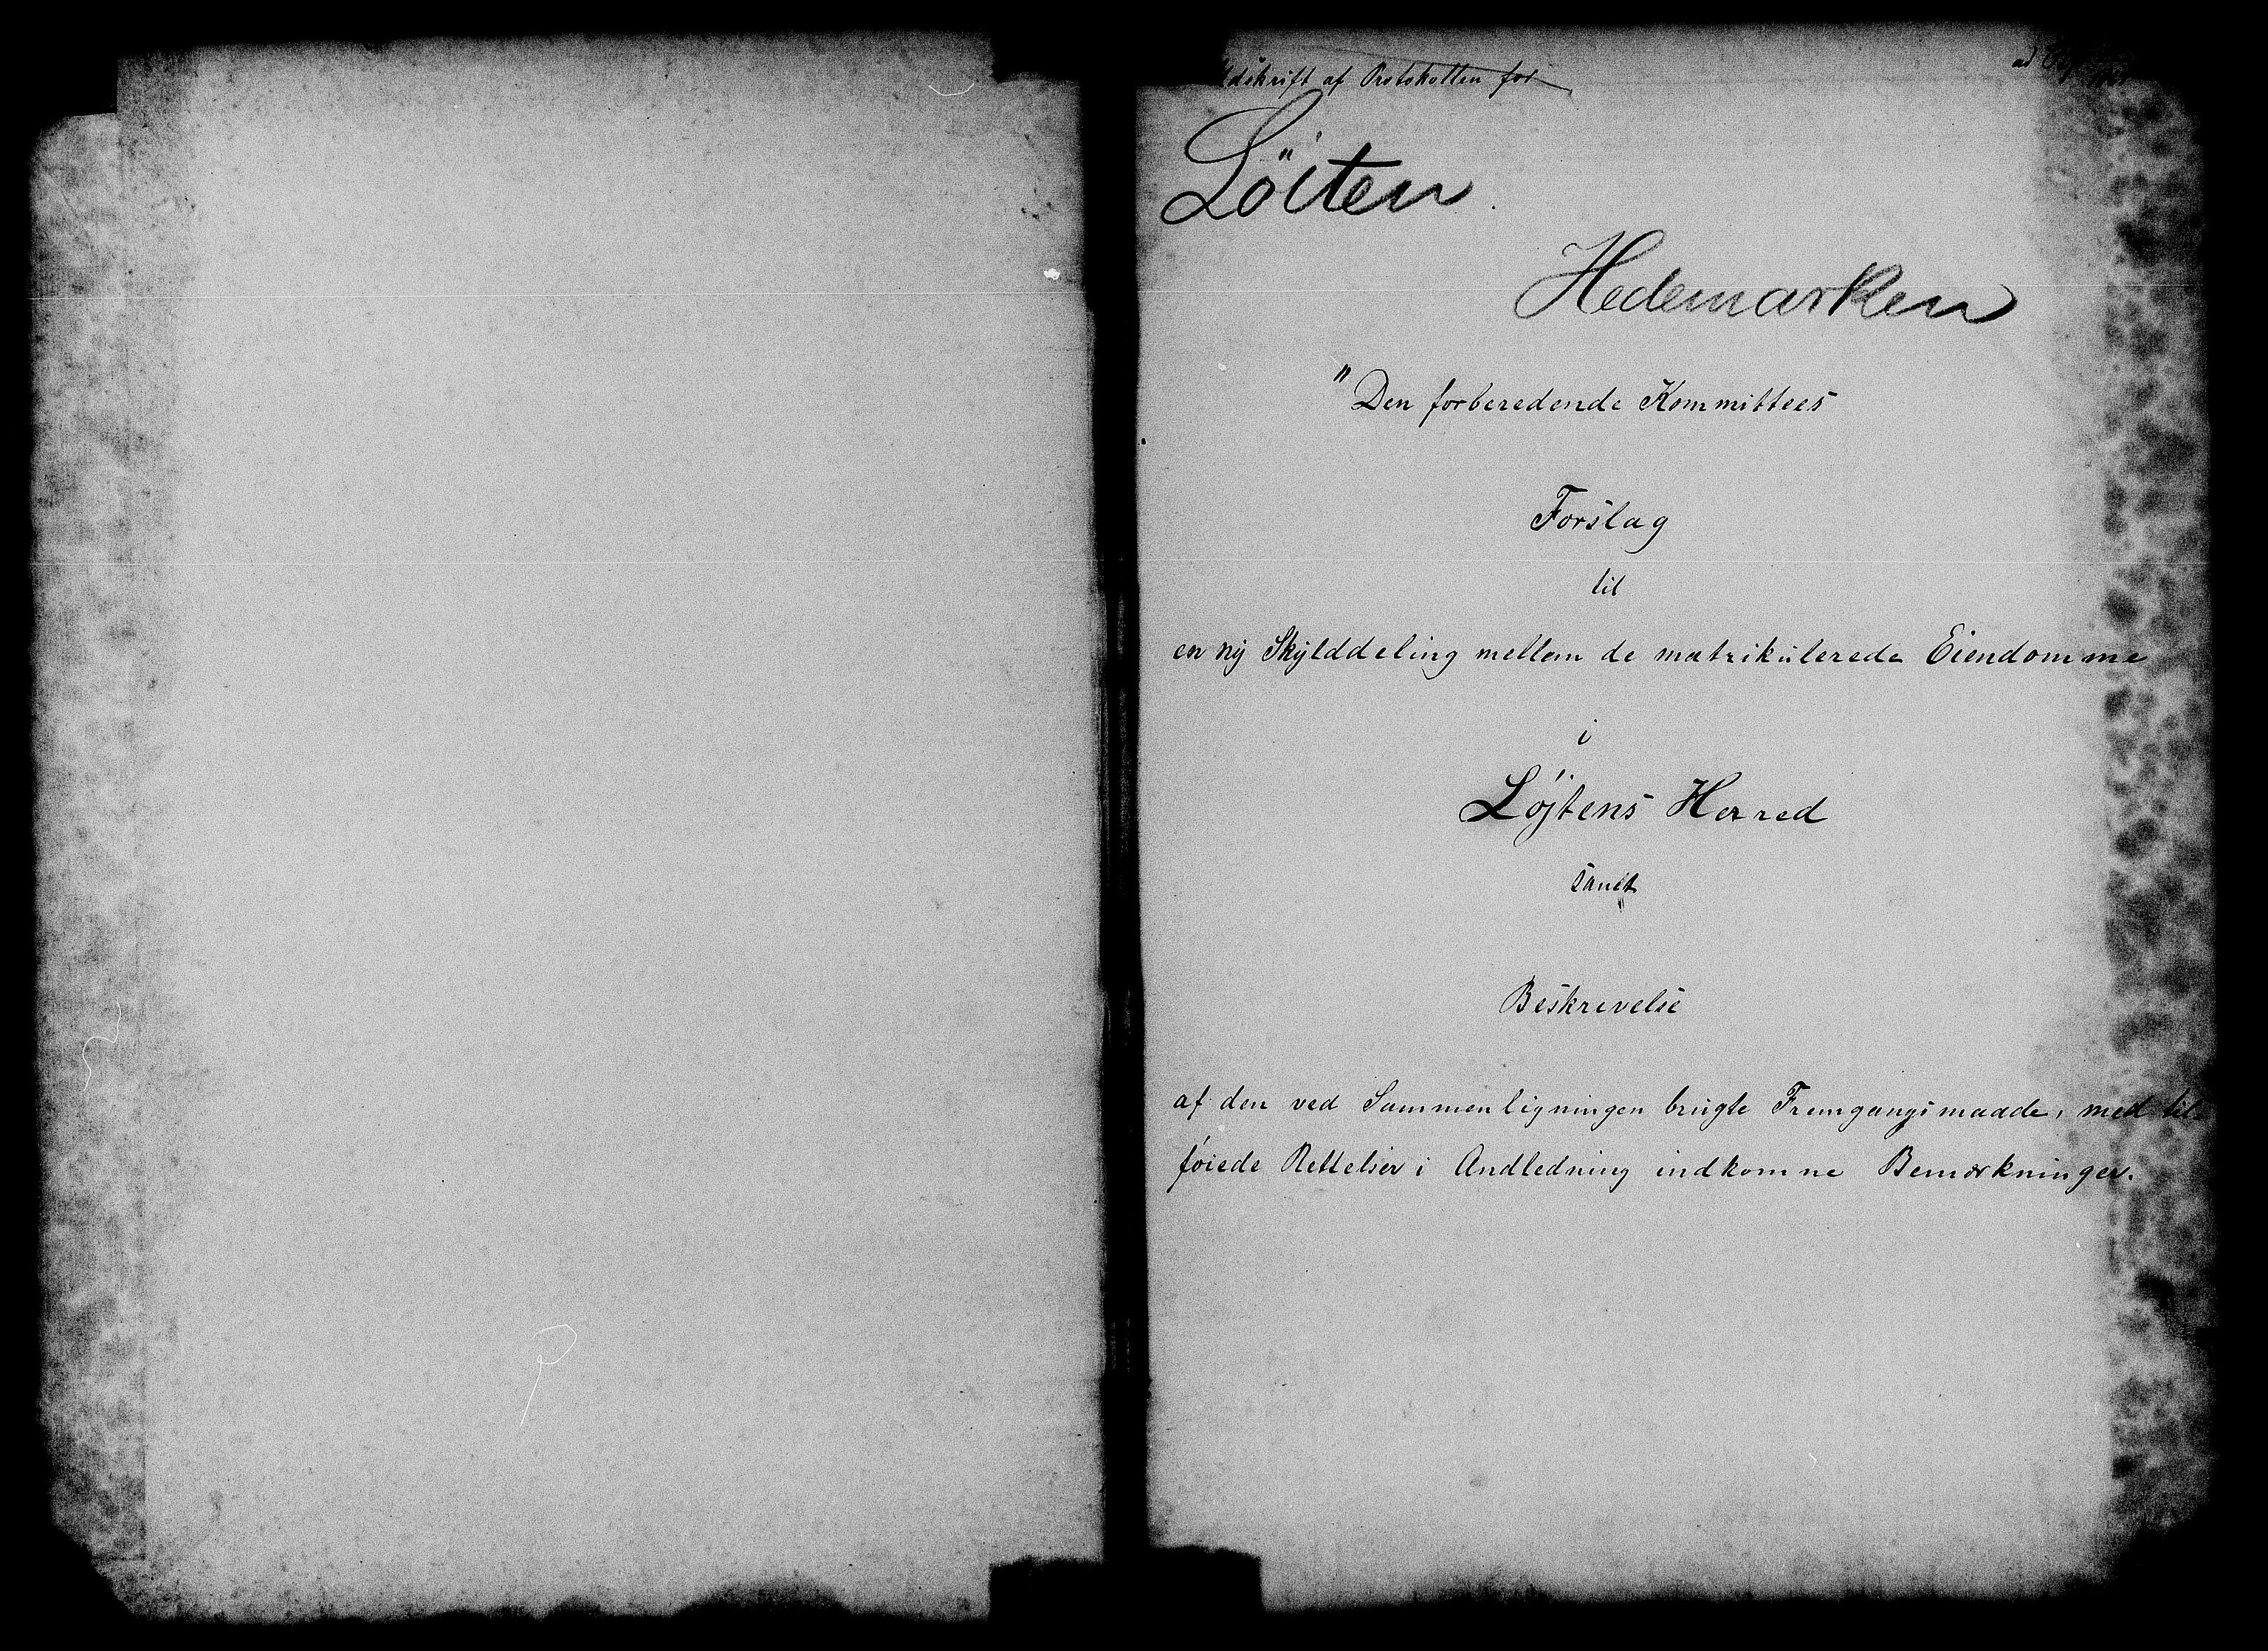 Udskrift af Protokollen for
Löiten
Hedemarken
"Den forberedende Kommittees
Forslag
til
en ny Skylddeling mellem de matrikulerede Eiendomme
i
Löjtens Herred
samt
Beskrivelse
af den ved Sammenligningen brugte Fremgangsmaade, med til-
føiede Rettelser i Andledning indkomne Bemærkninger.